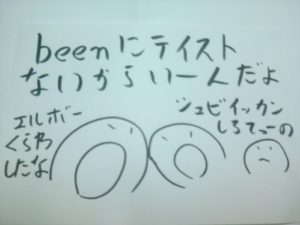 beenにテイスト
ないからい一人だよ
エルボー
くらわ
したな
シュビイッカン
しろてーの